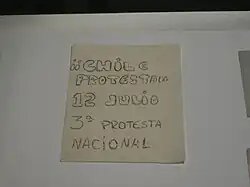 ¡¡CHILE
PROTESTA!!
12 JULIO
3ª PROTESTA
NACIONAL